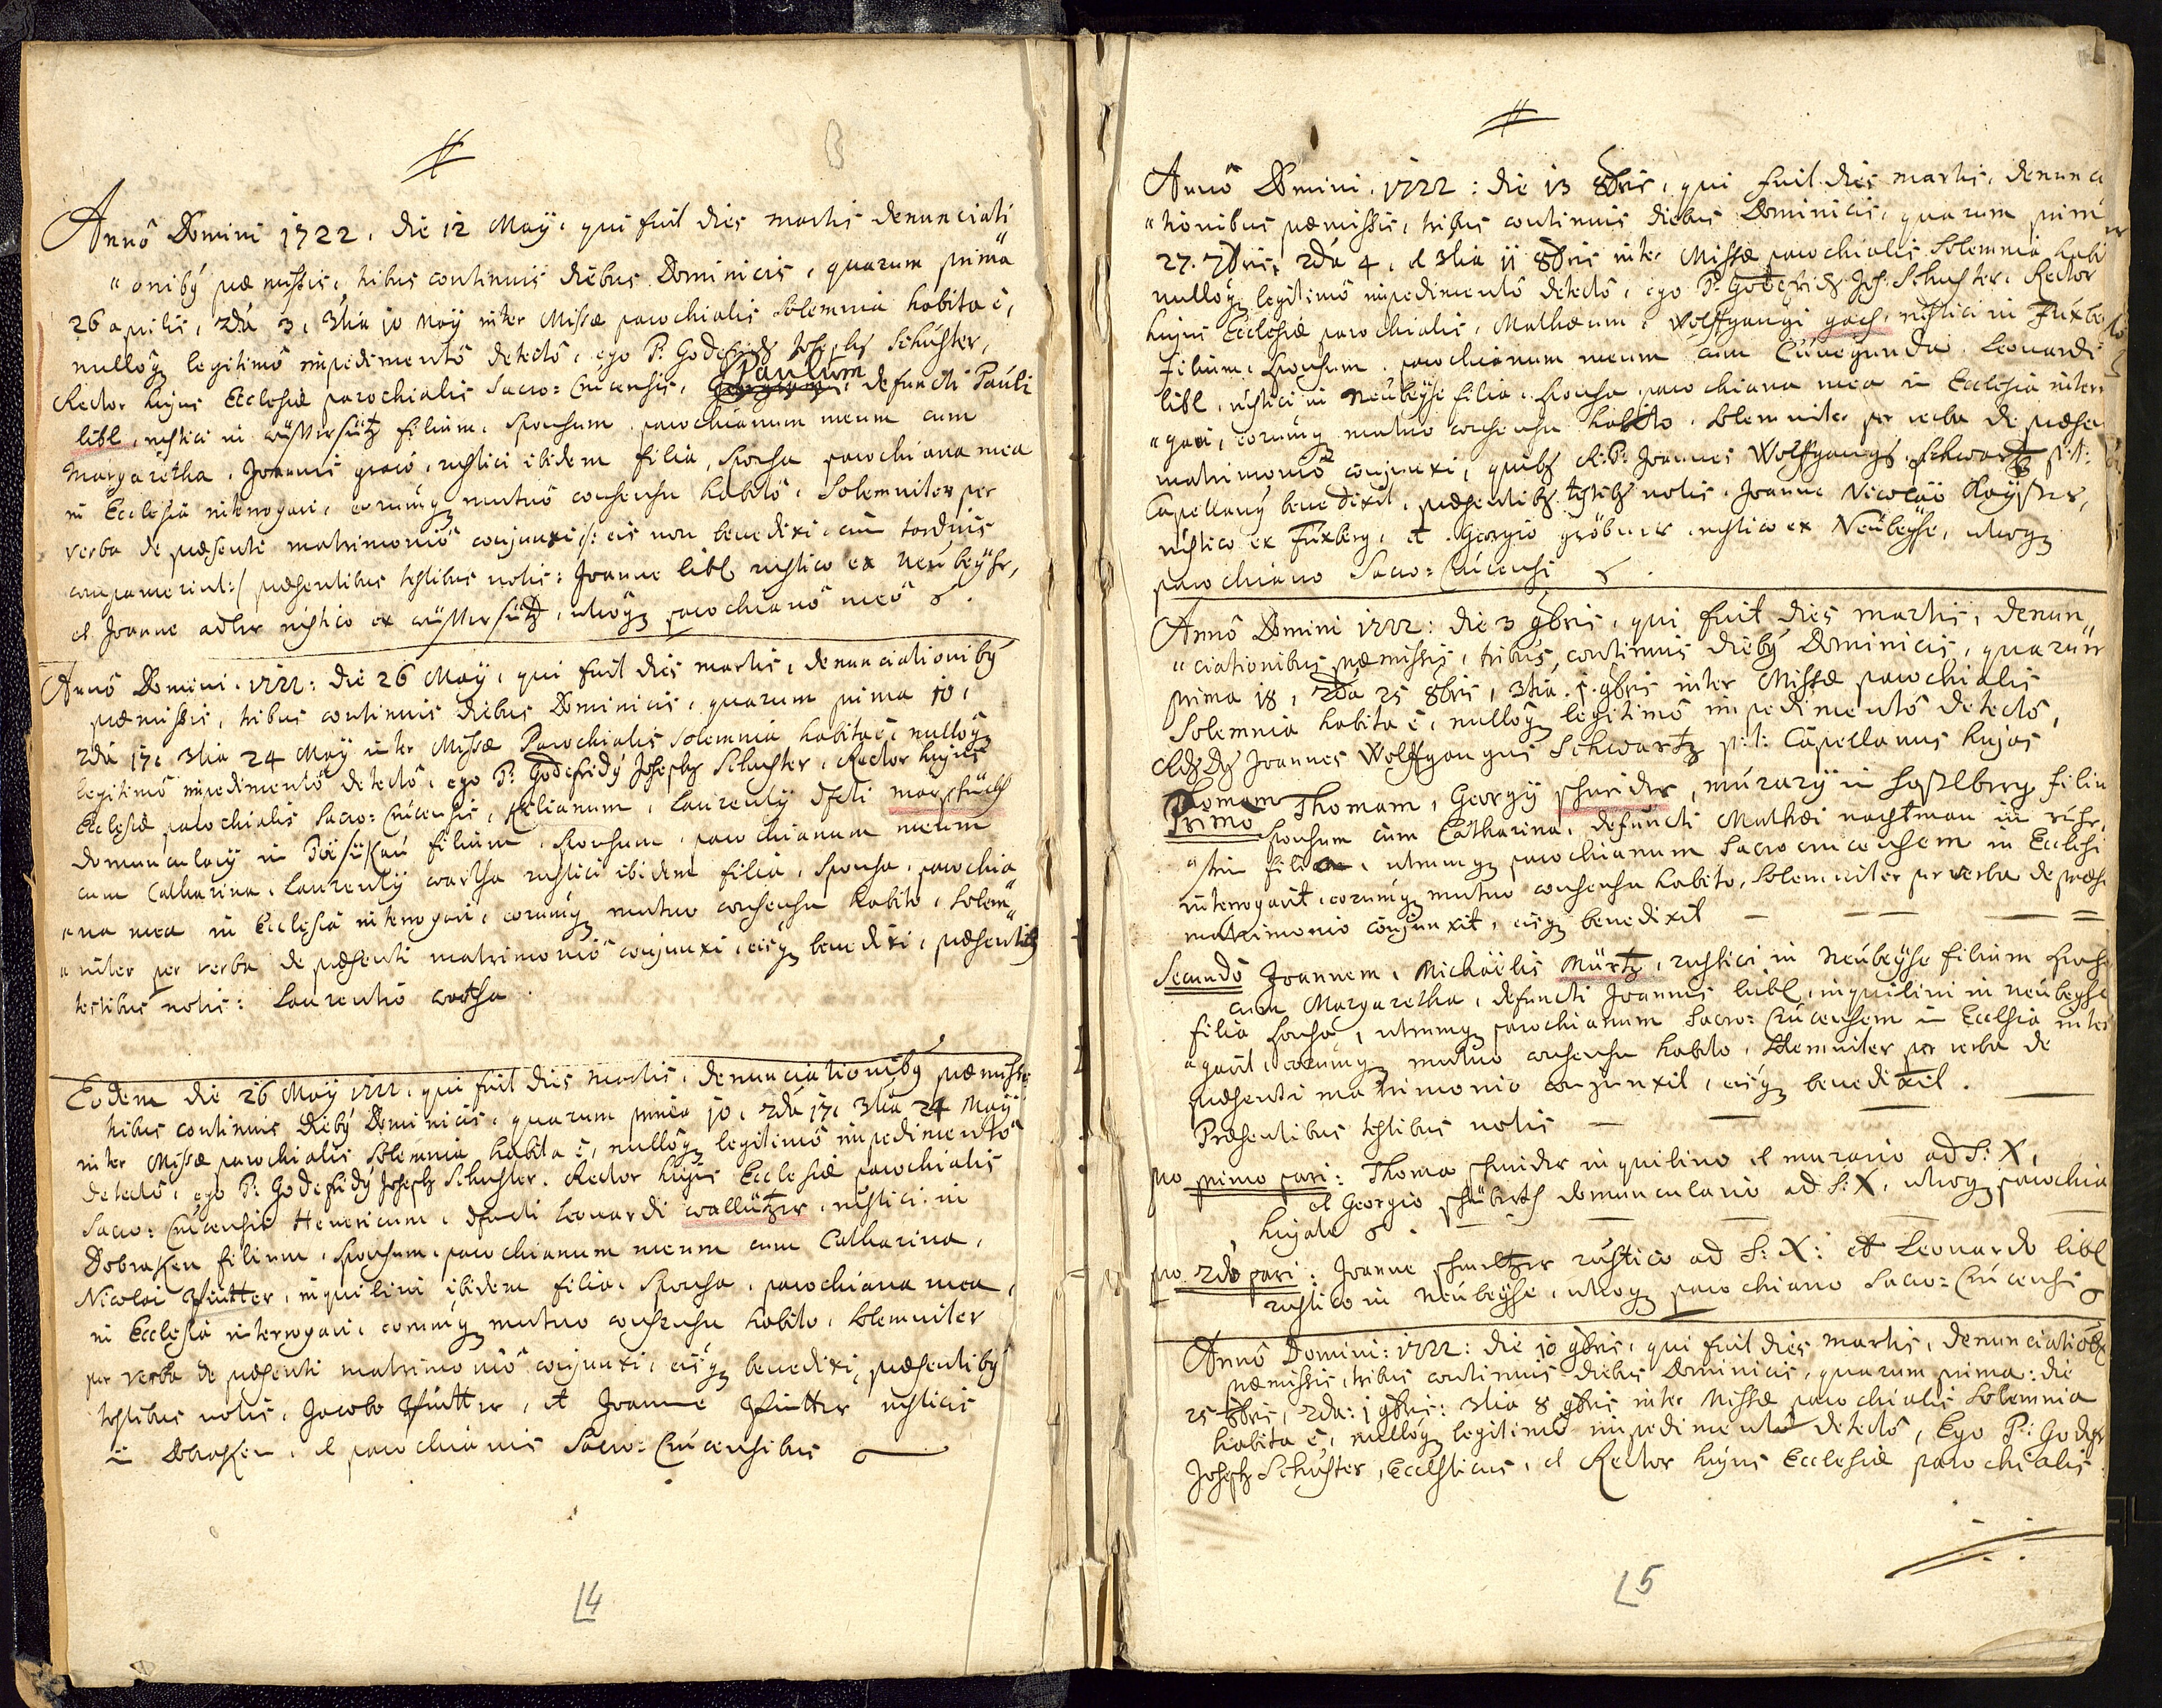 Annô Domini 1722, die 12 Maÿ, qui fuit dies martis denunciati
"onibꝰ præmissis, tribus continuis diebus Dominicis, quarum prima
26 aprilis, 2da 3, 3tia 10 Maÿ inter Missæ parochialis solemnia habita ẽ,
nullôqꝫ legitimô impedimentô detectô, ego P: Godefridꝰ Josephꝰ Schuster,
Rector hujus Ecclesiæ parochialis Sacro=Crucensis, Paulum, defuncti Pauli
libl, rustici in filium, Sponsum parochianum meum cum
Margaretha, Joannis, rustici ibidem filia, Sponsa parochiana mea
in Ecclesia interrogavi, eorumqꝫ mutuô consensu habitô, Solemniter per
verba de præsenti matrimoniô conjunxi /: eis non benedixi, cum tardius
comparuerint:/ præsentibus testibus notis: Joanne libl rustico ex Neubeÿhe,
et Joanne adler rustico ex, utrôqꝫ parochianô meô
Annô Domini 1722: die 26 Maÿ, qui fuit dies martis, denunciationibꝰ
præmissis, tribus continuis diebus Dominicis, quarum prima 10,
2da 17, 3tia 24 Maÿ inter Missæ Parochialis solemnia habita ẽ, nullôqꝫ
legitimô impedimentô detectô, ego P: Godefridꝰ Josephꝰ Schuster, Rector hujus
Ecclesiæ parochialis Sacro=Crucensis, Kilianum, Laurentÿ dfcti
domuncularÿ in filium, Sponsum, parochianum meum
cum Catharina, Laurentÿ wartha rustici ibidem filia, Sponsa, parochia
"na mea in Ecclesia interrogavi, eorumqꝫ mutuo consensu habito, solem"
"niter per verba de præsenti matrimoniô conjunxi, eisqꝫ benedixi, præsentibꝰ
testibus notis: Laurentio wartha.
Eodem die 26 Maÿ 1722, qui fuit dies martis, denunciationibꝰ præmissis
tribus continuis diebꝰ Dominicis, quarum prima 10, 2da 17, 3tia 24 Maÿ
inter Missæ parochialis solemnia habita ẽ, nullôqꝫ legitimô impedimentô
detectô, ego P: Godefridꝰ Josephꝰ Schuster, Rector hujus Ecclesiæ parochialis
Sacro=Crucensis Henericum, dfuncti Leonardi wallützer, rustici in
Dobraken filium, Sponsum, parochianum meum cum Catharina,
Nicolai, inquilini ibidem filia, Sponsa, parochiana mea,
in Ecclesia interrogavi, eorumqꝫ mutuo consensu habito, solemniter
per verba de præsenti matrimoniô conjunxi, eisqꝫ benedixi, præsentibꝰ
testibus notis, Jacobo, et Joanne rusticis
in Dobraken, et parochianis Sacro=Crucensibus
4
Annô Domini 1722: die 13 8bris, qui fuit dies martis, denuncia
"tionibus præmissis, tribus continuis diebus Dominicis, quarum prim
27. 7bris, 2da 4, et 3tia 11 8bris inter Missæ parochialis Solemnia habi
nullôqꝫ legitimô impedimentô detectô, ego P: Godefridꝰ Jos: Schuster, Rector
hujus Ecclesiæ parochialis, Mathæum, Wolffgangi gach, rustici in Fuxbe
filium, Sponsum, parochianum meum cum Cunegunda, Leonardi
libl, rustici in Neubeÿhe filia, Sponsa, parochiana mea in Ecclesia inter
"gavi, eorumqꝫ mutuo consensu habito, solemniter per verba de præsen
matrimoniô conjunxi, quibꝰ R:P: Joannes Wolffgangꝰ Schwartz p:t:
Capellanꝰ benedixit, præsentibꝰ testibꝰ notis, Joanne Nicolaô Kaÿser,
rustico ex Fuxberg, et Georgio gröbner, rustico ex Neubeÿhe, utroqꝫ
parochiano Sacro=Crucensi
Annô Domini 1722: die 3 9bris, qui fuit dies martis, denun"
"ciationibus præmissis, tribus continuis diebꝰ Dominicis, quarum
prima 18, 2da 25 8bris, 3tia 1 9bris inter Missæ parochialis
Solemnia habita ẽ, nullôqꝫ legitimô impedimentô detectô,
Joannes Wolffgangus Schwartz p:t: Capellanus hujas
Thomam Thomam, Georgÿ schnider, murarÿ in Hasslberg filiu
Primô Sponsum cum Catharina, defuncti Mathæi nachtman in
filia, utrumqꝫ parochianum Sacrocrucensem in Ecclesi
interrogavit, eorumqꝫ mutuo consensu habito, Solemniter per verba de præse
matrimonio conjunxit, eisqꝫ benedixit
Secundô Joannem, Michaëlis Mürtz, rustici in Neubeÿhe filium Spons
cum Margaretha, defuncti Joannis libl, inquilini in Neubeÿhe
filia Sponsa, utrumqꝫ parochianum Sacro=Crucensem in Ecclesia inter
"gavit, eorumqꝫ mutuo consensu habito, Solemniter per verba de
præsenti matrimonio conjunxit, eisqꝫ benedixit.
Præsentibus testibus notis
pro primo pari: Thoma schnider inquilino et murario ad S: X,
et Georgio domunculario ad S: X, utroqꝫ parochia
hujate
pro 2do pari: Joanne rustico ad S: X: et Leonardo libl
rustico in Neubeÿhe, utroqꝫ parochiano Sacro=Crucensi
Annô Domini: 1722: die 10 9bris, qui fuit dies martis, denunciatiõbꝰ
præmissis, tribus continuis diebus Dominicis, quarum prima: die
25 8bris, 2da: 1 9bris: 3tia 8 9bris inter Missæ parochialis Solemnia
habita ẽ, nullôqꝫ legitimô impedimentô detectô, Ego P: Godefr
Josephꝰ Schuster, Ecclesticus, et Rector hujus Ecclesiæ parochialis
5